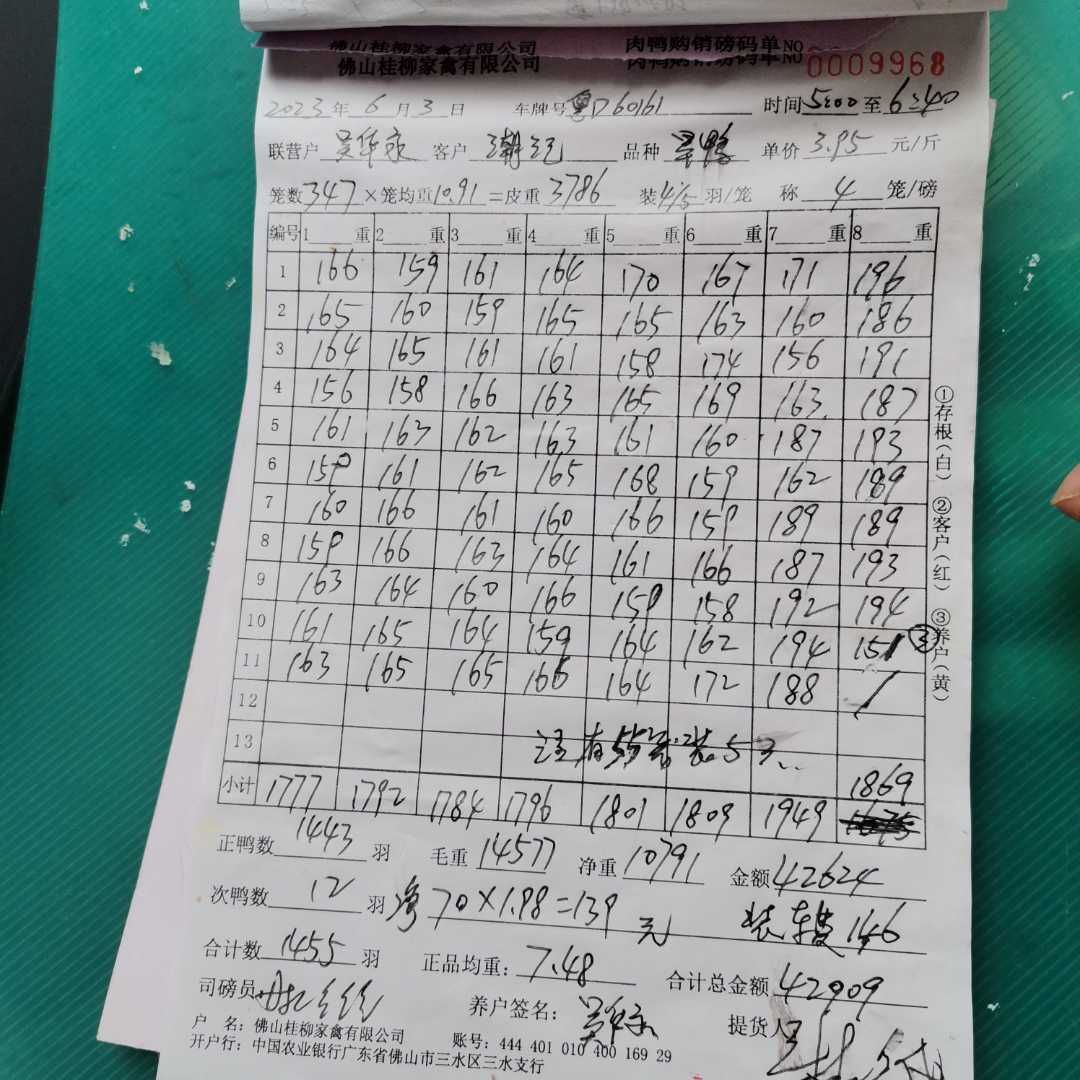 佛山桂柳家禽有限公司 肉鸭购销磅码单 NO
佛山桂柳家禽有限公司 肉鸭购销磅码单 NO 0009968
2023年 6 月 3 日 车牌号 粤D60161 时间 5:00 至 6:40
联营户 吴华永 客户 潮记 品种 旱鸭 单价 3.95 元/斤
笼数 347 ×笼均重 10.91 =皮重 3786 装 4/5 羽/笼 称 4 笼/磅
编号 1 重 2 重 3 重 4 重 5 重 6 重 7 重 8 重
1 166 159 161 164 170 167 171 196
2 165 160 159 165 165 163 160 186
3 164 165 161 161 158 174 156 191
4 156 158 166 163 165 169 163 187
5 161 163 162 163 161 160 187 193
6 159 161 162 165 168 159 162 189
7 160 166 161 160 166 159 189 189
8 159 166 163 164 161 166 187 193
9 163 164 160 166 159 158 192 194
10 161 165 164 159 164 162 194 151 ③
11 163 165 165 166 164 172 188 /
12
13 注有55笼装5只
1869
小计 1777 1792 1784 1796 1801 1809 1949
正鸭数 1443 羽 毛重 14577 净重 10791 金额 42624
次鸭数 12 羽 净 70×1.98=139元 装车费 146
合计数 1455 羽 正品均重: 7.48 合计总金额 42909
司磅员 养户签名: 提货人
户 名: 佛山桂柳家禽有限公司 账号: 444 401 010 400 169 29
开户行: 中国农业银行广东省佛山市三水区三水支行
①存根(白) ②客户(红) ③养户(黄)